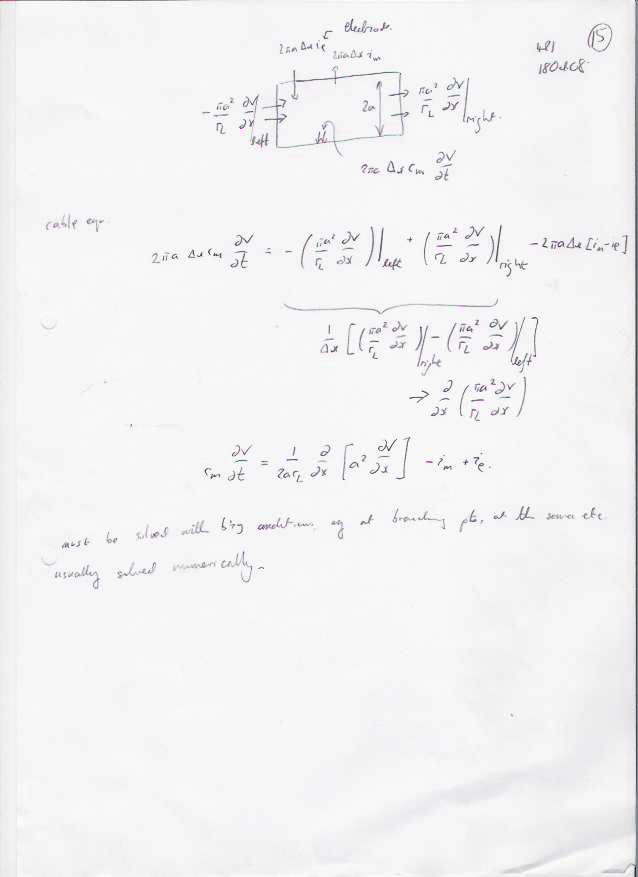 electrode.
15
2πaΔx i_e
2πaΔx i_m
481
180ct08
-πa²/r_L ∂V/∂x |left
2a
πa²/r_L ∂V/∂x |right.
2πa Δx c_m ∂V/∂t
cable eqn.
2πa Δx c_m ∂V/∂t = -(πa²/r_L ∂V/∂x)|left + (πa²/r_L ∂V/∂x)|right - 2πaΔx[i_m-i_e]
1/Δx [(πa²/r_L ∂V/∂x)|right - (πa²/r_L ∂V/∂x)|left]
→ ∂/∂x (πa²/r_L ∂V/∂x)
c_m ∂V/∂t = 1/2ar_L ∂/∂x [a² ∂V/∂x] - i_m + i_e.
must be solved with b'ry conditions, eg at branching pts, at the soma etc
usually solved numerically.